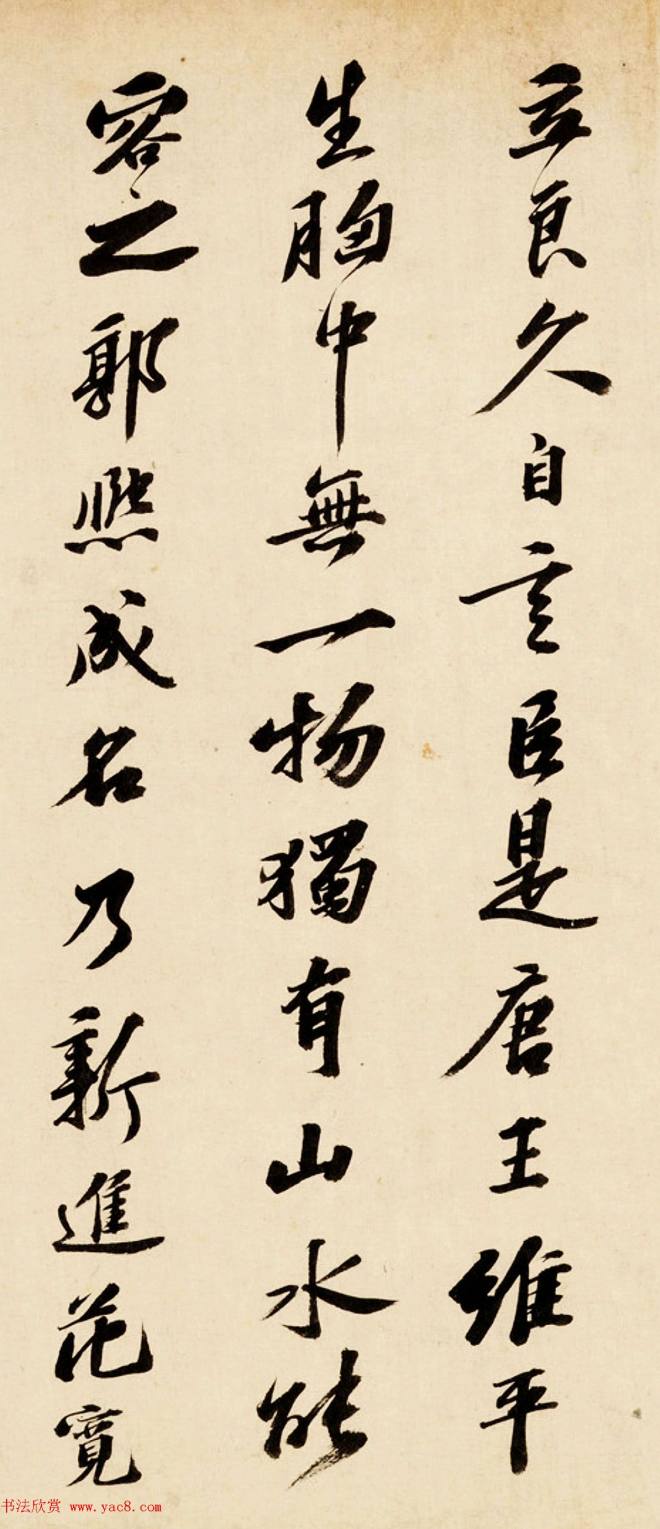 立良久自言臣是唐王維平
生胸中無一物獨有山水能
容之郭熙成名乃新進范寬
书法欣赏 www.yac8.com